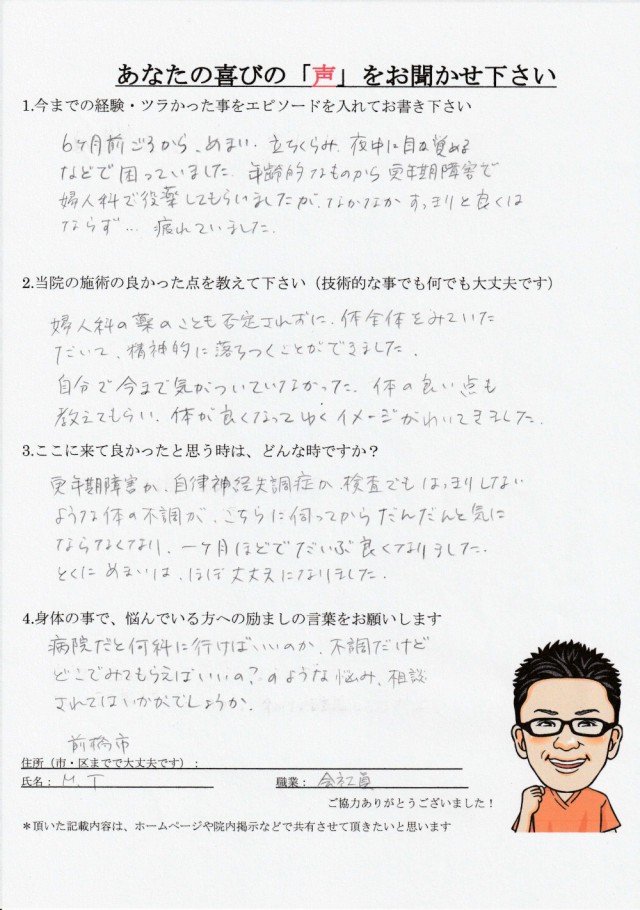 あなたの喜びの「声」をお聞かせ下さい
1.今までの経験・ツラかった事をエピソードを入れてお書き下さい
6ヶ月前ごろから、めまい、立ちくらみ、夜中に目が覚める
などで困っていました。年齢的なものから更年期障害で
婦人科で投薬してもらいましたが、なかなかすっきりと良くは
ならず… 疲れていました。
2.当院の施術の良かった点を教えて下さい（技術的な事でも何でも大丈夫です）
婦人科の薬のことも否定されずに、体全体をみていた
だいて、精神的に落ちつくことができました。
自分で今まで気がついていなかった、体の良い点も
教えてもらい、体が良くなってゆくイメージがわいてきました。
3.ここに来て良かったと思う時は、どんな時ですか？
更年期障害か、自律神経失調症か、検査でもはっきりしない
ような体の不調が、こちらに伺ってからだんだんと気に
ならなくなり、一ヶ月ほどでだいぶ良くなりました。
とくにめまいは、ほぼ大丈夫になりました。
4.身体の事で、悩んでいる方への励ましの言葉をお願いします
病院だと何科に行けばいいのか、不調だけど
どこでみてもらえばいいの？のような悩み、相談
されてはいかがでしょうか。
前橋市
住所（市・区までで大丈夫です）：
氏名： M.T 職業： 会社員
ご協力ありがとうございました！
＊頂いた記載内容は、ホームページや院内掲示などで共有させて頂きたいと思います